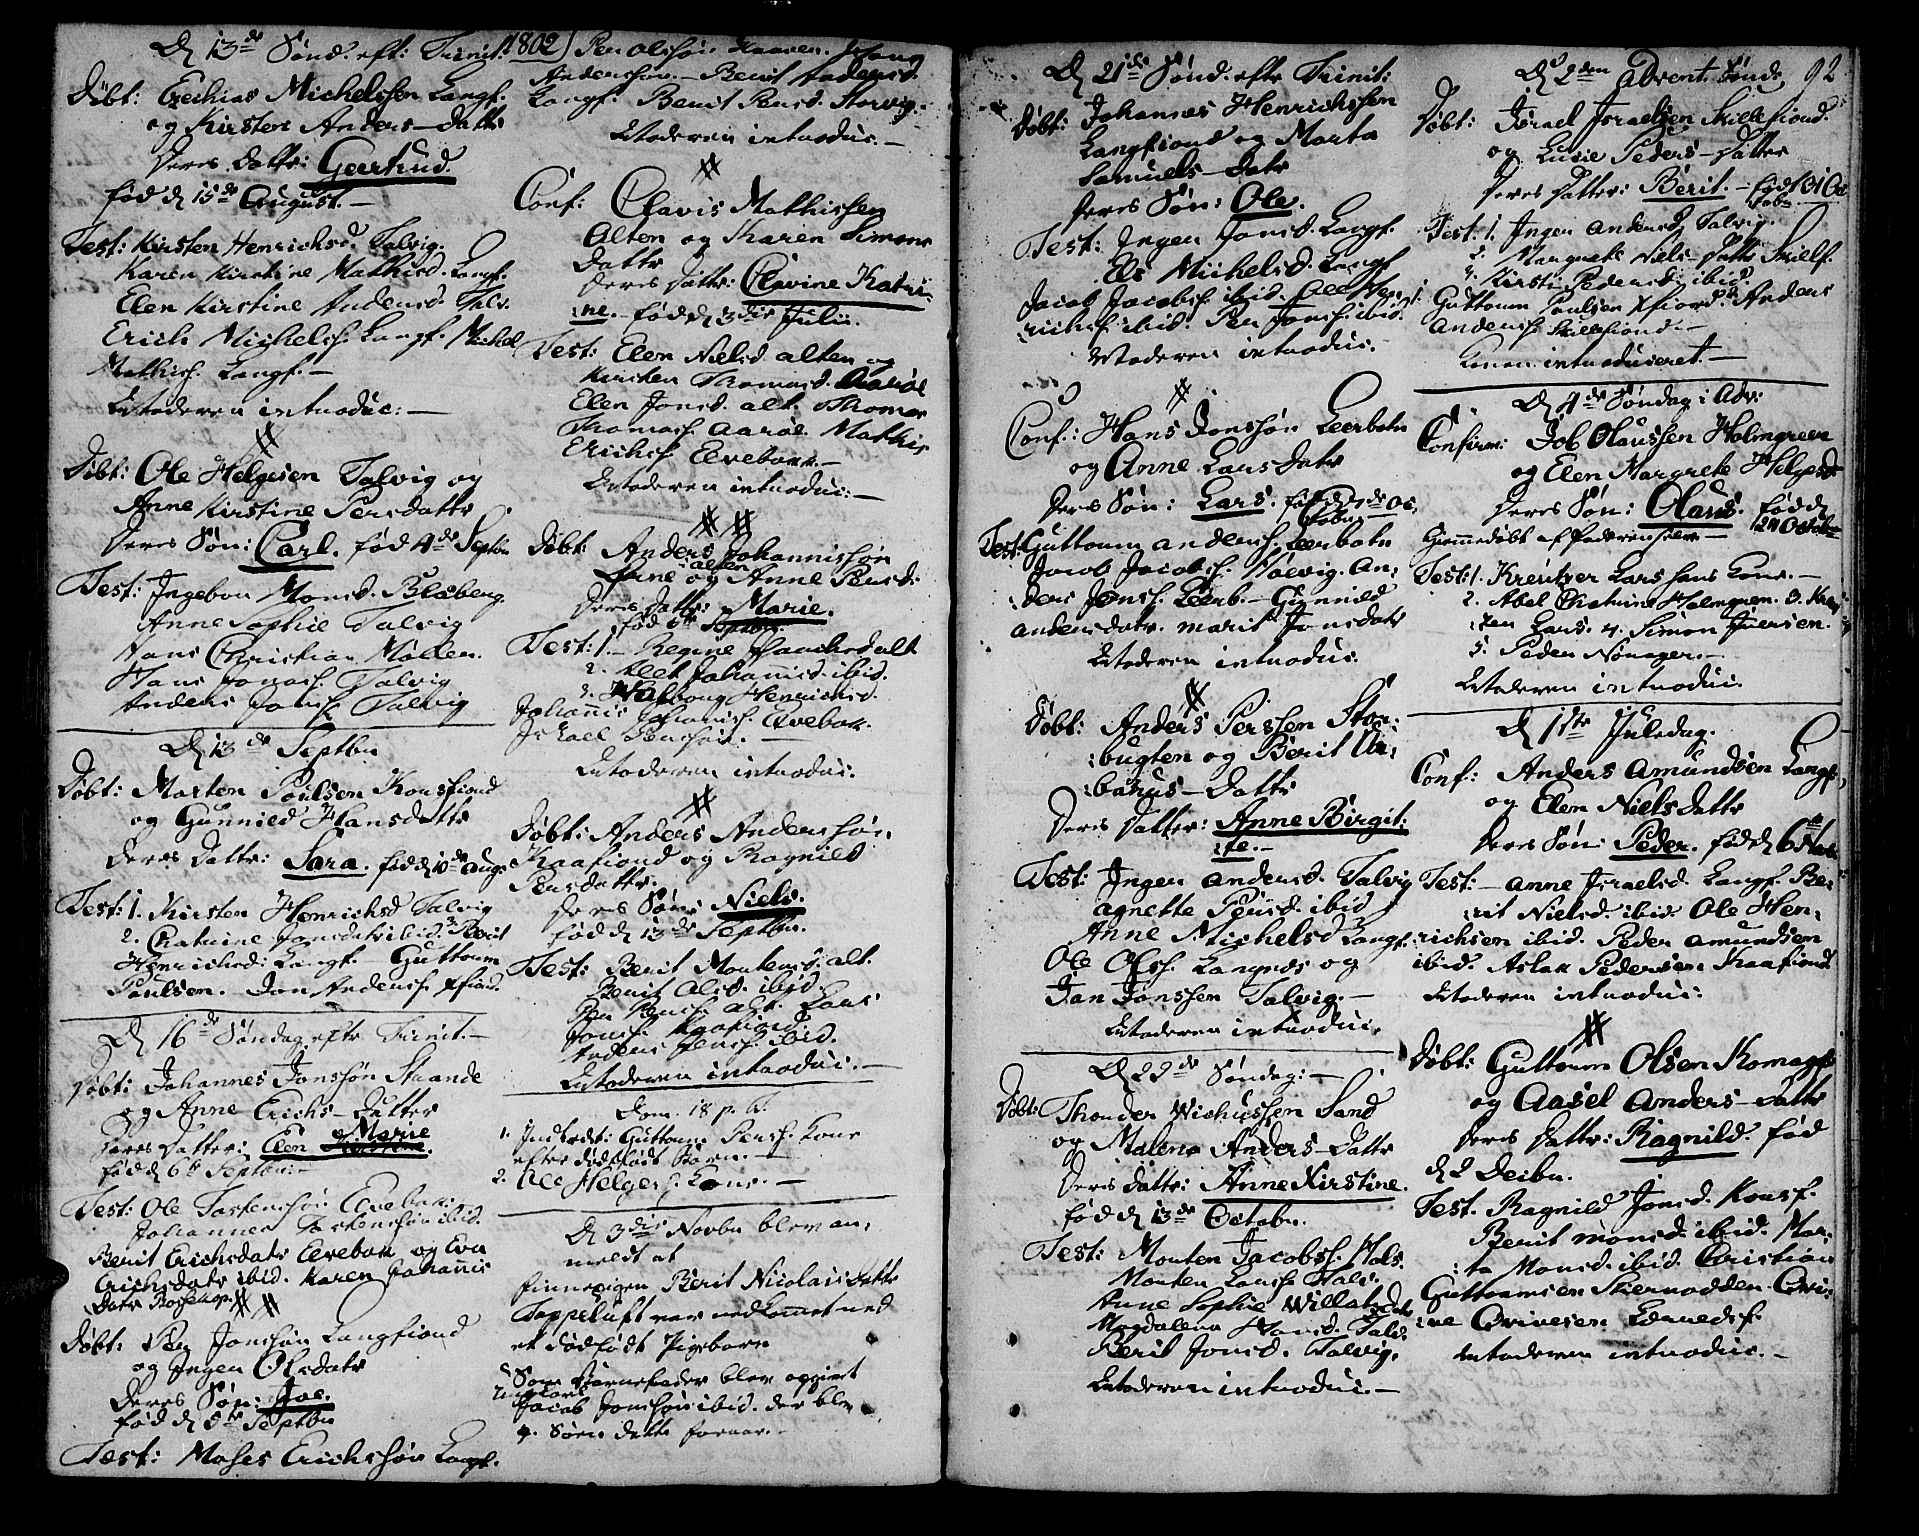 D 13de Sønd. eft: Trinit: 1802
Døbt: Ezechias Michelssen Langf.
og Kirsten Anders-Datr
Deres Datr: Geertrud.
fød d 15de August.-
Test: Kirsten Henrichsd. Talvig.
Karen Kirstine Mathisd. Langf.
Elen Kirstine Andersd. Talv.
Erich Michelsf. Langf. Michel
Mathisf. Langf.-
Moderen introduc:-
Døbt: Ole Helgesen Talvig og
Anne Kirstine Persdatter
Deres Søn: Carl. fød 4de Septbr
Test: Ingebor Monsd. Blaberg.
Anne Sophie Talvig
Hans Christian Møller.
Hans Jonasf. Talvig
Anders Jonsf. Talvig
D 13de Septbr
Døbt: Morten Poulsen Korsfiord
og Gunnild Hansdatter
Deres Datr: Sara. fød d 10de Aug.
Test: 1. Kirsten Henrichsd Talvig
2. Chatrine Jonsdatr ibid. 3. Berit
Henrichsd: Langf. Guttorm
Poulsen. Jon Andersf. Kfiord.
D 16de Søndag efter Trinit.-
Døbt: Johannes Jonssøn Skaande
og Anne Erichs-Datter
Deres Datter: Elen Marie
fød d 6te Septbr:-
Test: Ole Torstensøn Elvebak:
Johannes Torstensøn ibid.
Berit Erichsdatr Elvebak og Eva
Erichsdatr ibid. Karen Johannis
Datr Bosekop.
Døbt: Per Jonssøn Langfiord
og Inger Olsdatr
Deres Søn: Joe.
fød d 5te Septbr
Test: Moses Erichssøn Langf.
Per Olssøn Kaaven.
Anderssøn.- Berit Andersd.
Langf. Berit Persd. Storvig.
Moderen introduc.-
Conf: Clavis Mathissen
Alten og Karen Simons
Datr
Deres Datr: Clavine Katri-
ne.- fød d 3die Julii.
Test: Elen Nielsd alten og
Kirsten Thomasd. Aarøe
Elen Jonsd. alt. Thomas
Thomasf. Aarøe. Mathis
Erichsf. Elvebakk.-
Moderen introduc:-
Døbt: Anders Johannissøn
alten og Anne Persd:
Deres Datr: Marie.
fød 5te Septbr.
Test: 1.- Regine Hansd alt
2. Elet Johannisd. ibid.
3. Walborg Henrichsd.
Johannis Johannisf. Elvebak.
Michael Perssøn.
Moderen introduc:
Døbt: Anders Anderssøn
Kaafiord og Ragnild
Persdatter.
Deres Søn: Niels.
fød d 13de Septbr.
Test: Berit Mortensd. alt.
Berit Olsd. ibid.
Per Persf. alt. Lars
Jonsf. Kaafiord
Anders Persf. ibid.
Moderen introduc.-
Dom. 18 p. Tr.
1. Indledt: Guttorm Persf. Kone
efter dødfødt Barn.-
2. Ole Helgesf. Kone.-
D 3die Novbr blev an-
meldt at
Finnepigen Berit Nicolais Datter
Toppeluft var nedkommet med
et dødfødt Pigebarn
Som Barnefader blev opgivet
Jacob Jonssøn ibid. der blev
D 21de Sønd. efter Trinit:
Døbt: Johannes Henrichssen
Langfiord og Marta
Samuels-Datr
Deres Søn: Ole.
Test: Inger Jonsd. Langf.
Els Michelsd. Langf
Jacob Jacobsf. ibid. Ole Hen-
richsf. ibid. Per Jonsf. ibid.
Moderen introduc.-
Conf: Hans Jonssøn Leerbotn
og Anne Lars Datr
Deres Søn: Lars. fød d 7de Oc-
tober
Test: Guttorm Andersf. Leerbotn
Jacob Jacobsf. Halvig. An-
ders Jonsf. Leerb.- Gunnild
andersdatr. Marit Jonsdatr
Moderen introduc:
Døbt: Anders Perssen Stor-
bugten og Berit Ra-
bakus-Datr
Deres Datter: Anne Birgit-
te.-
Test: Inger andersd. Talvig
agnette Persd. ibid
Anne Michelsd Langf.
Ole Olsf. Langnæs og
Jan Jonssen Talvig.-
Moderen introduc.
D 22de Søndag:-
Døbt: Thorder Michelssen Sand
og Malene Anders-Datr
Deres Datr: Anne Kirstine.
fød d 13de Octobr.
Test: Morten Jacobsf. Hals.
Morten Larsf. Talv.
Anne Sophie Willatsdatr
Magdalena Hansd. Talv.
Berit Jonsd. Talvig.
Moderen introduc:-
92
D 2den Advent. Sønd.
Døbt: Israel Israelsen Skillefiord.
og Lusie Peders-Datter
Deres Datter: Berit.- født 31 Oc
tobr.
Test. 1. Inger Andersd Talvig.
2. Margrete Niels-Datr Skillf
3. Kirsti Pedersd. ibid.
Guttorm Paulsen Kfiord. Anders
Andersf. Skillefiord.-
Konen introduceret.-
D 4de Søndag i Adv:
Confirm: Job Olaussen Holmgreen
og Elen Margrete Helgesd
Deres Søn: Olaus. fød d
24 October
Hjemmedøbt af Faderen selv-
Test: 1. Kreutzer Lars hans kone.-
2. Abel Chatrine Holmgren. 3. Krey
zer Lars. 4. Simon Iversen.
5. Peder Nørager.-
Moderen introduc.
D 1ste Juledag.
Conf: Anders Amundsen Langf,
og Elen Niels datr
Deres Søn: Peder. fød d 6te Novb
Test: - Anne Israelsd. Langf. Be-
rit Nielsd. ibid. Ole Hen-
richsen ibid. Peder Amundsen
ibid. Aslak Pedersen Kaafiord
Moderen introduc.
Døbt: Guttorm Olsen Komagf.
og Aasel Anders-Datr
Deres Datr: Ragnild. fød
d 2 Decbr.
Test. Ragnild Jonsd. Korsf.
Berit Monsd. ibid. Mar-
ta Monsd. ibid. Christian
Guttormsen Stiernødden.
Moderen introduc.-